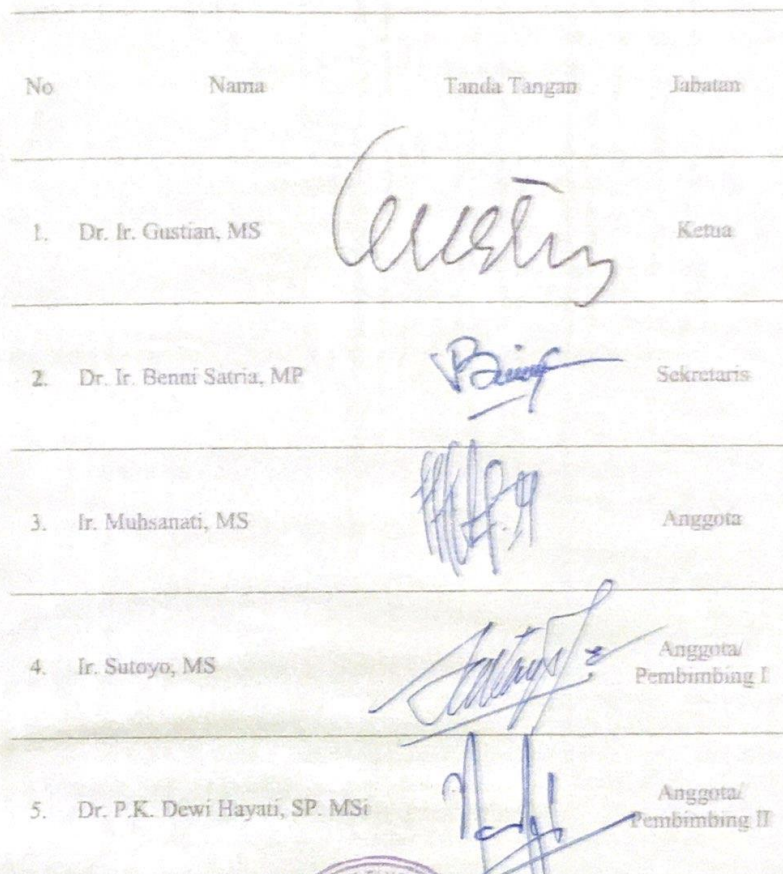 No Nama Tanda Tangan Jabatan
1. Dr. Ir. Gustian, MS Ketua
2. Dr. Ir. Benni Satria, MP Sekretaris
3. Ir. Muhsanati, MS Anggota
4. Ir. Sutoyo, MS Anggota/
Pembimbing I
5. Dr. P.K. Dewi Hayati, SP. MSi Anggota/
Pembimbing II